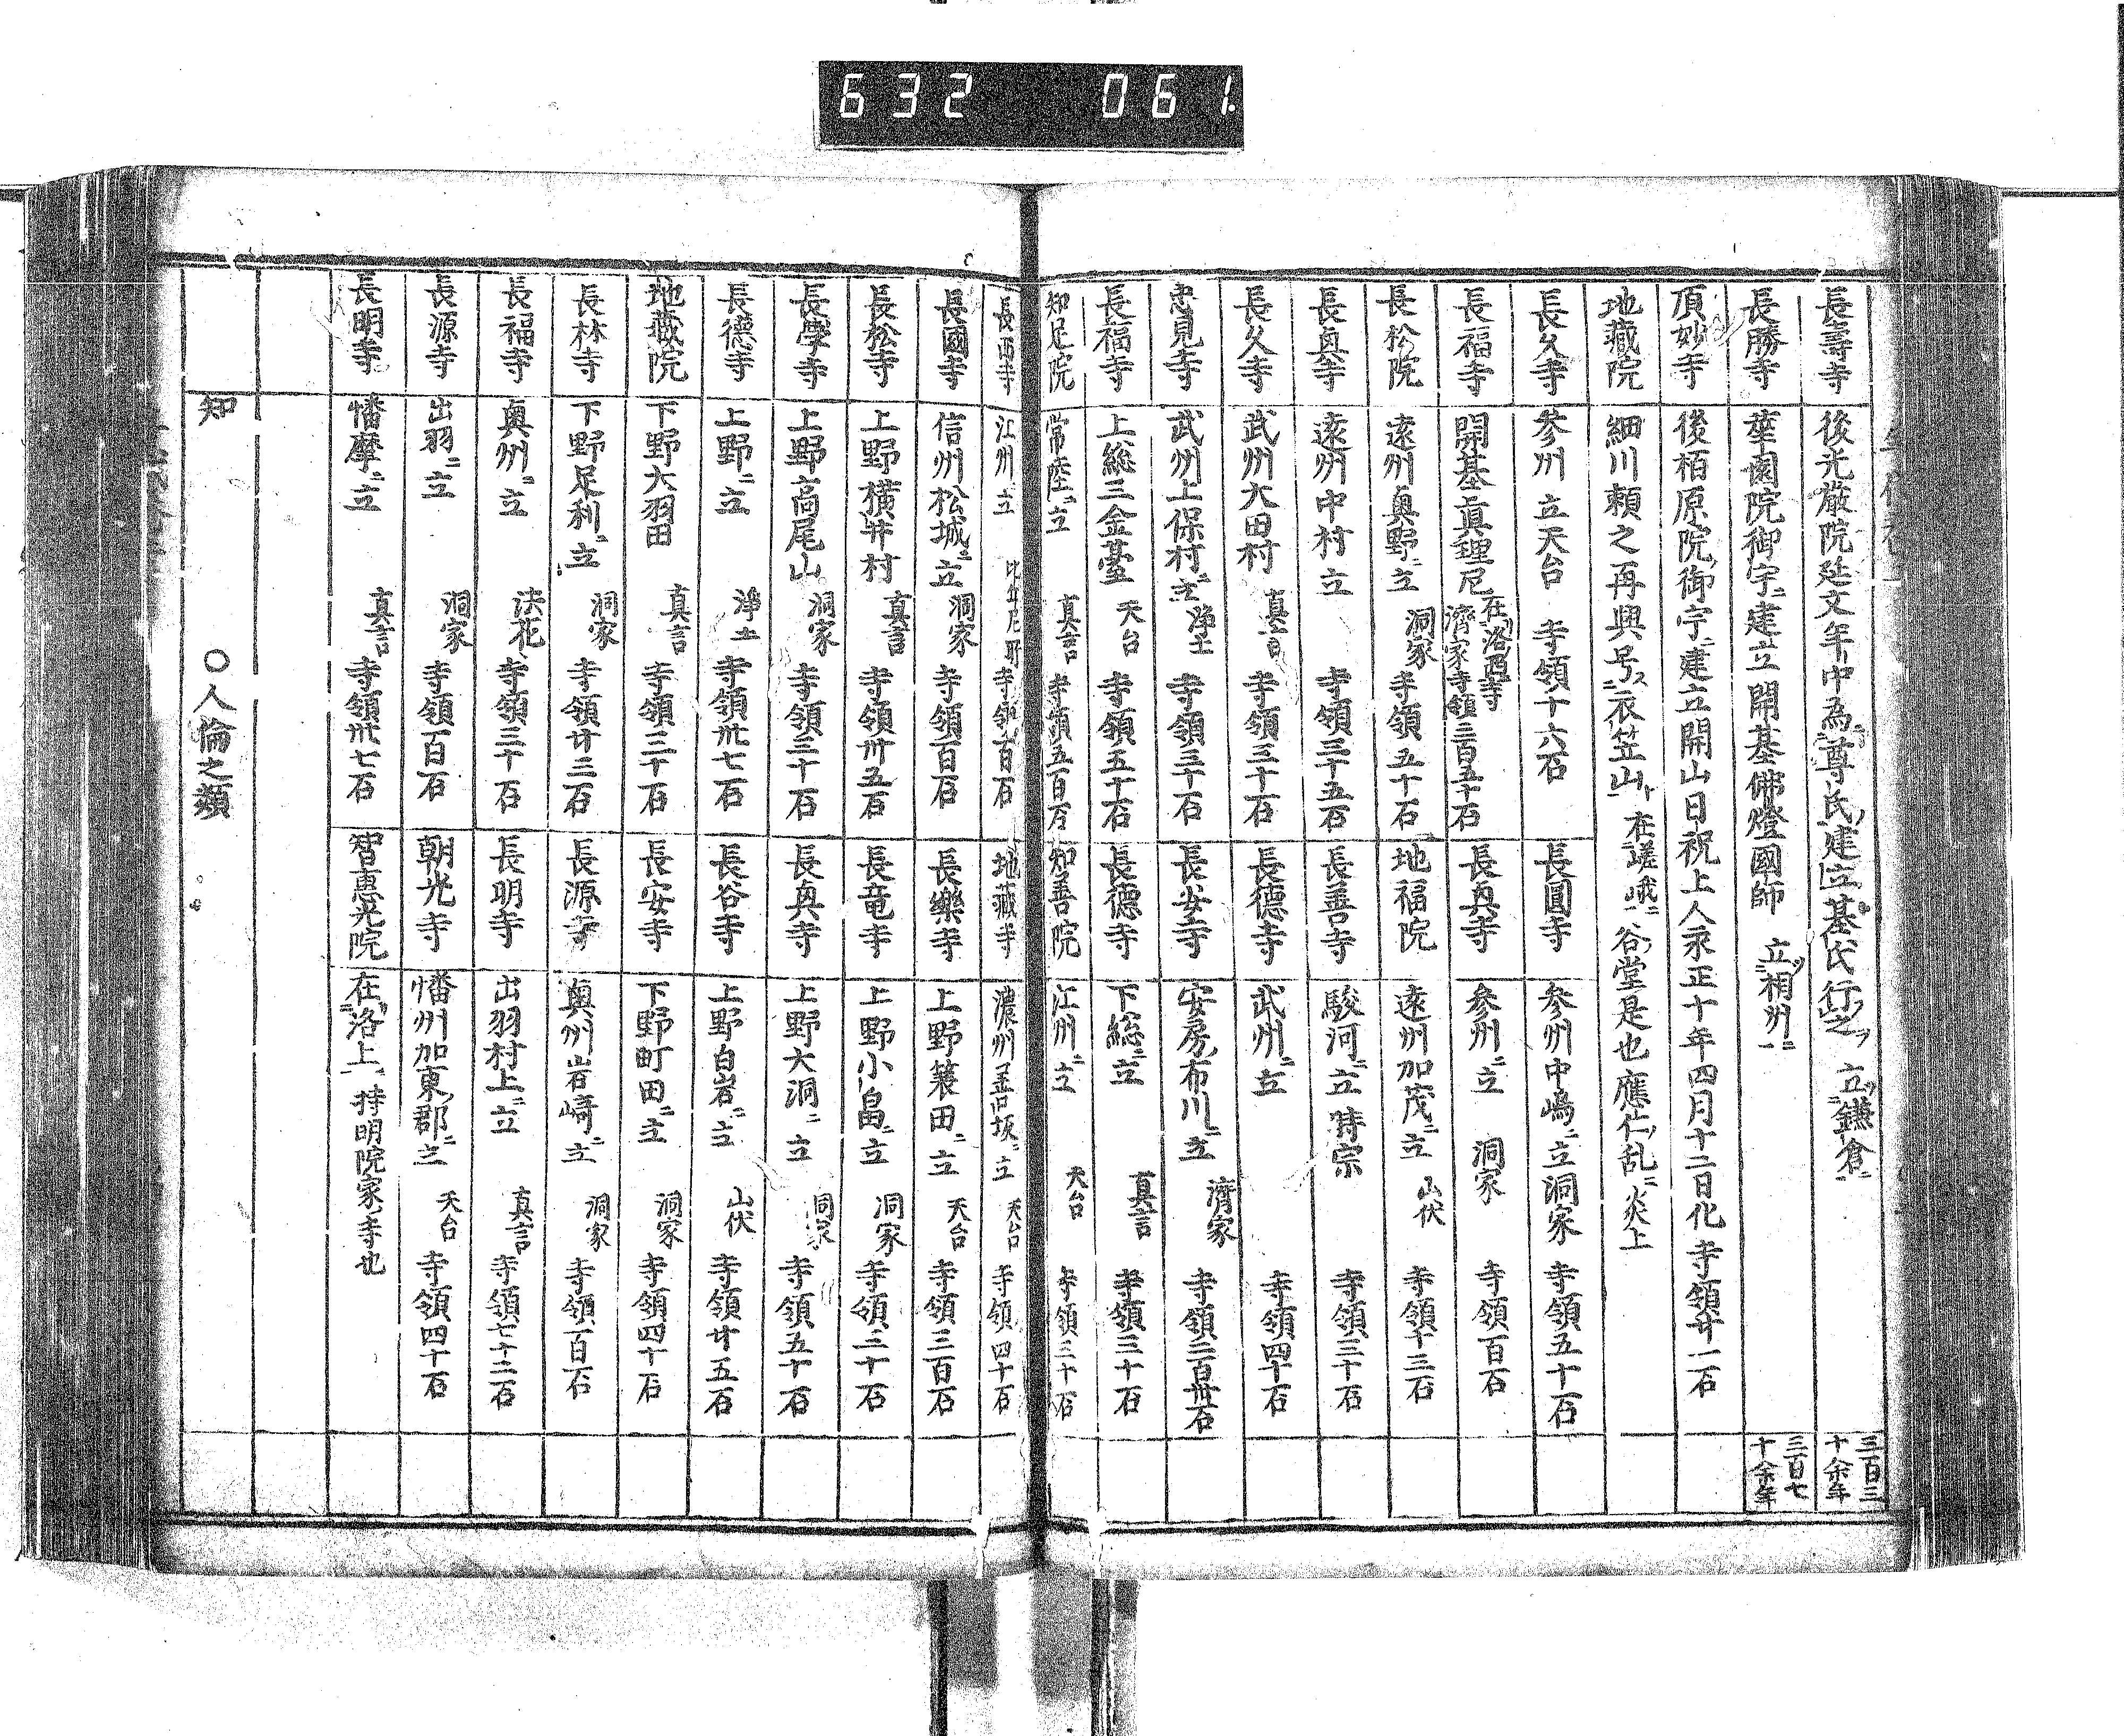 632 061
長壽寺 後光嚴院延文年中為尊氏建立基氏行之 立鎌倉ニ 三百三十余年
長勝寺 華園院御宇ニ建立開基佛燈國師 立相州ニ 三百七十余年
頂妙寺 後栢原院御宇ニ建立開山日祝上人永正十年四月十二日化 寺領廿一石
地藏院 細川頼之再興号ス衣笠山ト在嵯峨ニ谷堂是也應仁乱ニ炎上
長久寺 参州 立天台 寺領十六石 長圓寺 参州中嶋ニ立洞家 寺領五十石
長福寺 開基眞理尼 在洛西寺 濟家寺領二百五十石 長興寺 参州ニ立 洞家 寺領百石
長松院 遠州奥野ニ立 洞家 寺領五十石 地福院 遠州加茂ニ立 山伏 寺領十三石
長興寺 遠州中村立 寺領三十五石 長善寺 駿河ニ立 時宗 寺領三十石
長久寺 武州大田村 真言 寺領三十石 長德寺 武州ニ立 寺領四十石
忠見寺 武州上保村ニ立 淨土 寺領三十石 長安寺 安房布川ニ立 濟家 寺領二百卅石
長福寺 上総三金臺 天台 寺領五十石 長德寺 下総ニ立 真言 寺領三十石
知足院 常陸ニ立 真言 寺領五百石 知善院 江州ニ立 天台 寺領三十石
長西寺 江州立 比丘尼所 寺領百石 地藏寺 濃州善口坂ニ立 天台 寺領四十石
長國寺 信州松城ニ立 洞家 寺領百石 長樂寺 上野簑田ニ立 天台 寺領三百石
長松寺 上野横井村 真言 寺領廿五石 長竜寺 上野小畠ニ立 洞家 寺領二十石
長學寺 上野高尾山 洞家 寺領三十石 長興寺 上野大洞ニ立 洞家 寺領五十石
長德寺 上野ニ立 淨土 寺領卅七石 長谷寺 上野白岩ニ立 山伏 寺領廿五石
地藏院 下野大羽田 真言 寺領三十石 長安寺 下野町田ニ立 洞家 寺領四十石
長林寺 下野足利ニ立 洞家 寺領廿三石 長源寺 奥州岩崎ニ立 洞家 寺領一百石
長福寺 奥州ニ立 法花 寺領三十石 長明寺 出羽村上ニ立 真言 寺領七十二石
長源寺 出羽ニ立 洞家 寺領百石 朝光寺 幡州加東郡ニ立 天台 寺領四十石
長明寺 幡摩ニ立 真言 寺領卅七石 智惠光院 在洛上ニ 持明院家寺也
知 〇人倫之類